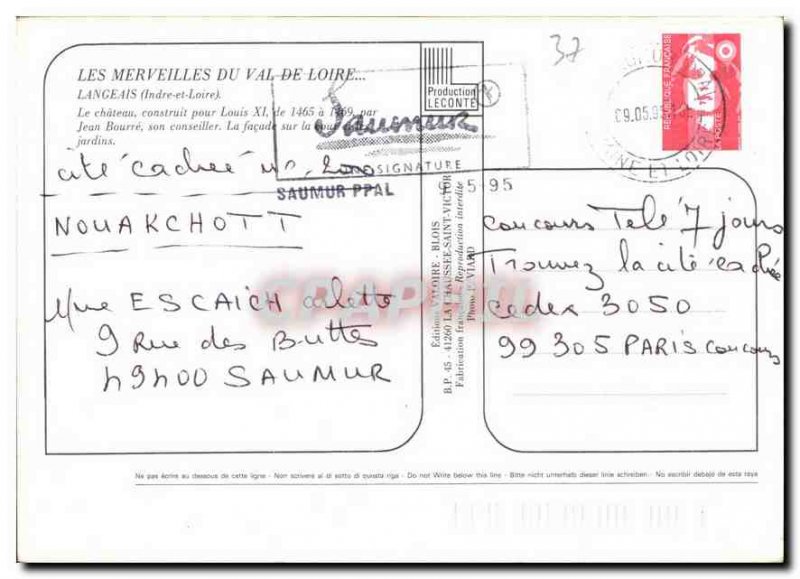 LES MERVEILLES DU VAL DE LOIRE...
LANGEAIS (Indre-et-Loire).
Le château, construit pour Louis XI, de 1465 à 1469, par
Jean Bourré, son conseiller. La façade sur la cour et les
jardins.
Production
LECONTE
37
Saumur
SIGNATURE
SAUMUR PPAL
9 5 95
cité cachée no 2000
NOUAKCHOTT
Mme ESCAICH Colette
9 Rue des Buttes
49400 SAUMUR
Éditions VALOIRE - BLOIS
B.P. 45 - 41260 LA CHAUSSÉE-SAINT-VICTOR
Fabrication française - Reproduction interdite
Photo P. VIARD
RÉPUBLIQUE FRANÇAISE
LA POSTE
09.05.95
MAINE ET LOIRE
concours Télé 7 jours
Trouvez la cité cachée
cedex 3050
99305 PARIS concours
Ne pas écrire au dessous de cette ligne - Non scrivere al di sotto di questa riga - Do not Write below this line - Bitte nicht unterhalb dieser linie schreiben. - No escribir debajo de esta raya